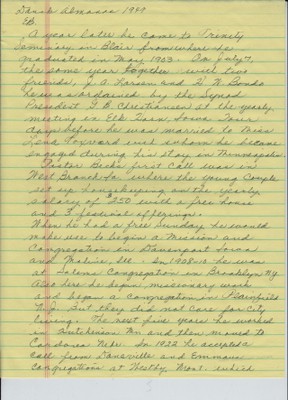 Dansk Almanas 1949
Eb.
A year later he came to Trinity
Seminary in Blair from where he
graduated in May 1903. On July 7,
the same year together with two
friends, J. A. Larsen and H. W. Bondo
he was ordained by the Synod
President G. B. Christiansen at the yearly
meeting in Elk Horn, Iowa Four
days before he was married to Miss
Lena Toxvard with whom he became
engaged during his stay in Minneapolis.
Pastor Beck's first call was in
West Branch Ia. where the young couple
set up housekeeping on the yearly
salary of $250 with a free house
and 3 festival offerings.
When he had a free Sunday he would
make use to begin a Mission and
Congregation in Davenport Iowa
and Moline, Ill. In 1908-10 he was
at Salems Congregation in Brooklyn N.Y.
Also here he begin missionary work
and began a congregation in Plainfield
N.J. But they did not care for City
living. The next five years he worked
in Hutchinson Mn. and then moved to
Cordova Nebr. In 1922 he accepted a
Call from Daneville and Emmaus
Congregations at Westby, Mont. which